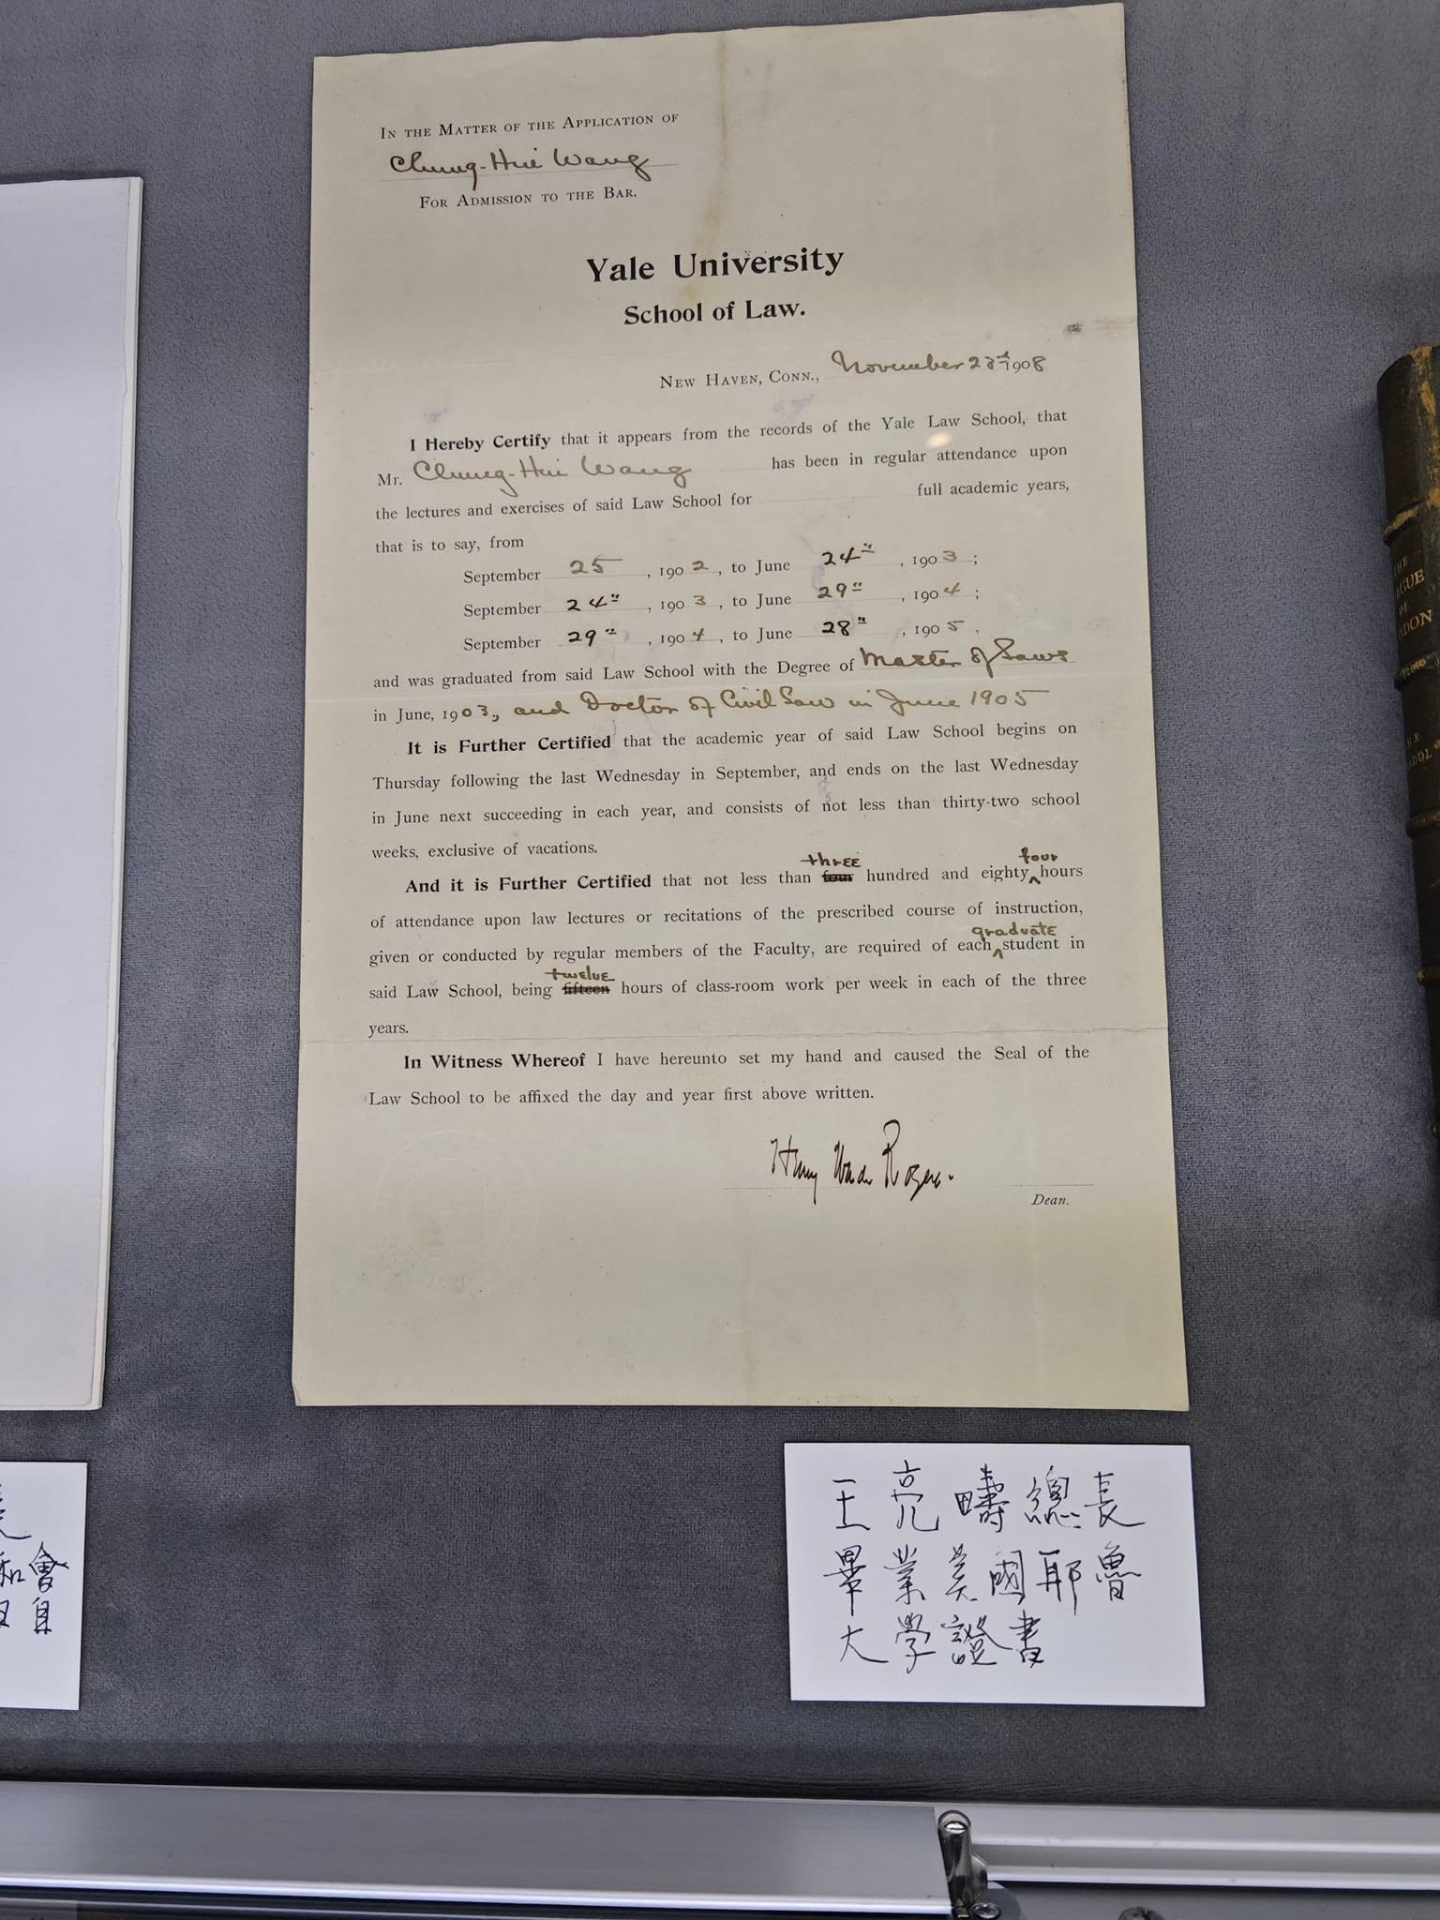 IN THE MATTER OF THE APPLICATION OF
Chung-Hui Wang
FOR ADMISSION TO THE BAR.
Yale University
School of Law.
NEW HAVEN, CONN., November 23rd 1908
I Hereby Certify that it appears from the records of the Yale Law School, that
Mr. Chung-Hui Wang has been in regular attendance upon
the lectures and exercises of said Law School for full academic years,
that is to say, from
September 25, 1902, to June 24th, 1903;
September 24th, 1903, to June 29th, 1904;
September 29th, 1904, to June 28th, 1905.
and was graduated from said Law School with the Degree of Master of Laws
in June, 1903, and Doctor of Civil Law in June 1905
It is Further Certified that the academic year of said Law School begins on
Thursday following the last Wednesday in September, and ends on the last Wednesday
in June next succeeding in each year, and consists of not less than thirty-two school
weeks, exclusive of vacations.
And it is Further Certified that not less than four three hundred and eighty four hours
of attendance upon law lectures or recitations of the prescribed course of instruction,
given or conducted by regular members of the Faculty, are required of each graduate student in
said Law School, being fifteen twelve hours of class-room work per week in each of the three
years.
In Witness Whereof I have hereunto set my hand and caused the Seal of the
Law School to be affixed the day and year first above written.
Henry Wade Rogers.
Dean.
王亮疇總長
畢業美國耶魯
大學證書
和會
自
THE
LEAGUE
OF